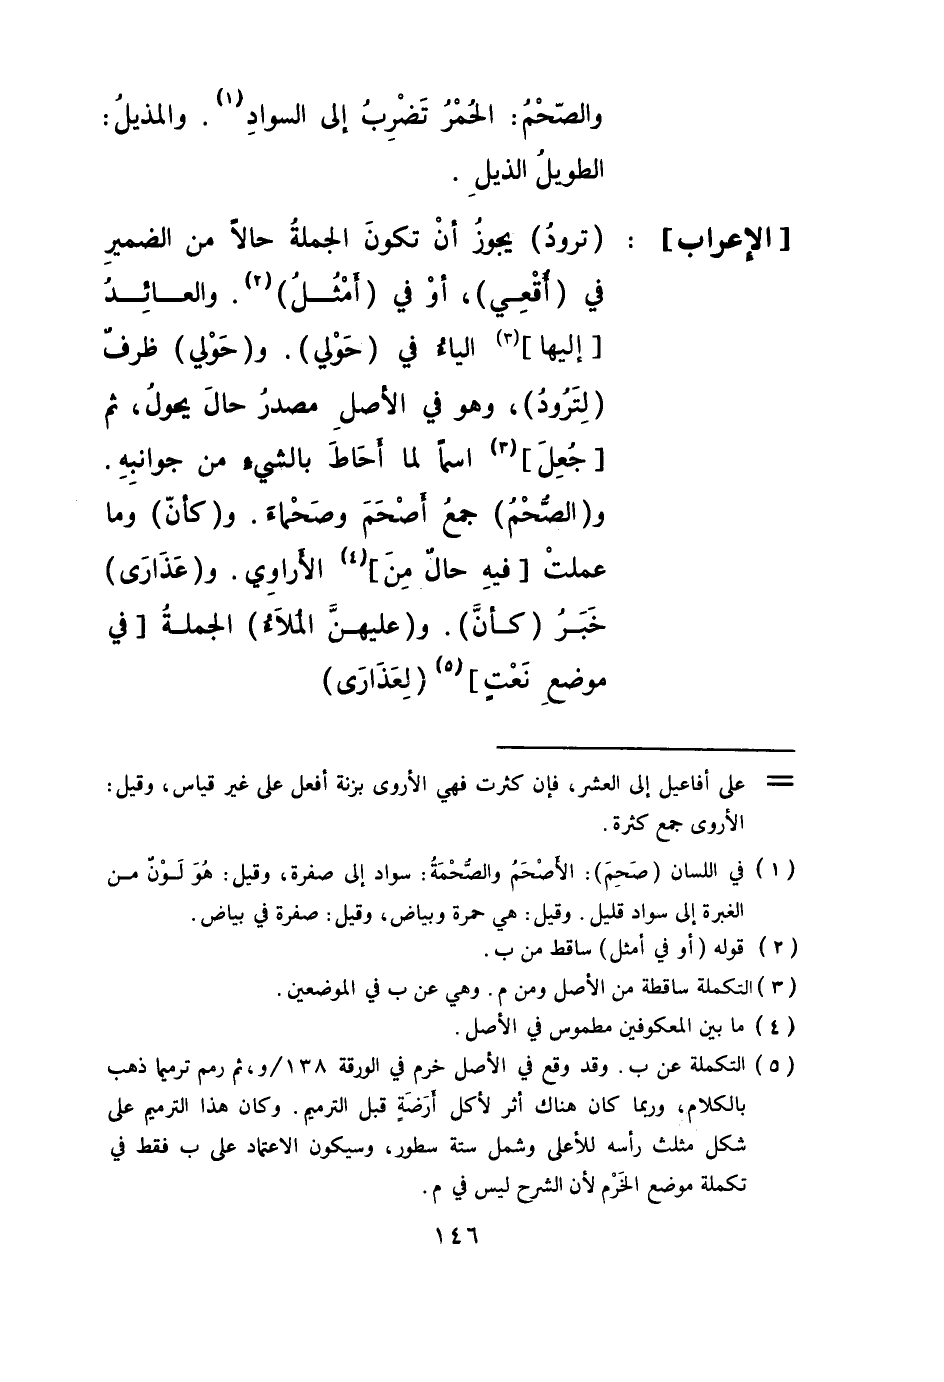 والصّحْمُ: الحُمْرُ تَضْرِبُ إلى السوادِ(١). والمذيلُ:
الطويلُ الذيلِ.
[الإعراب] : (ترودُ) يجوزُ أنْ تكونَ الجملةُ حالاً من الضميرِ
في (أُقْعِي)، أوْ في (أَمْثُلُ)(٢). والعائِدُ
[إليها](٣) الياءُ في (حَوْلي). و(حَوْلي) ظرفٌ
(لِتَرُودُ)، وهو في الأصلِ مصدرُ حالَ يحولُ، ثم
[جُعِلَ](٣) اسماً لما أَحَاطَ بالشيءِ من جوانبِهِ.
و(الصُّحْمُ) جمعُ أَصْحَمَ وصَحْماءَ. و(كأنّ) وما
عملتْ [فيهِ حالٌ مِنَ](٤) الأَراوِي. و(عَذَارَى)
خَبَرُ (كأنَّ). و(عليهنَّ المُلاَءُ) الجملةُ [في
موضعِ نَعْتٍ](٥) (لِعَذَارَى)
= على أفاعيل إلى العشر، فإن كثرت فهي الأروى بزنة أفعل على غير قياس، وقيل:
الأروى جمع كثرة.
(١) في اللسان (صَحِمَ): الأَصْحَمُ والصُّحْمَةُ: سواد إلى صفرة، وقيل: هُوَ لَوْنٌ من
الغبرة إلى سواد قليل. وقيل: هي حمرة وبياض، وقيل: صفرة في بياض.
(٢) قوله (أو في أمثل) ساقط من ب.
(٣) التكملة ساقطة من الأصل ومن م. وهي عن ب في الموضعين.
(٤) ما بين المعكوفين مطموس في الأصل.
(٥) التكملة عن ب. وقد وقع في الأصل خرم في الورقة ١٣٨/و، ثم رمم ترميما ذهب
بالكلام، وربما كان هناك أثر لأكل أَرَضَةٍ قبل الترميم. وكان هذا الترميم على
شكل مثلث رأسه للأعلى وشمل ستة سطور، وسيكون الاعتماد على ب فقط في
تكملة موضع الخَرْم لأن الشرح ليس في م.
١٤٦